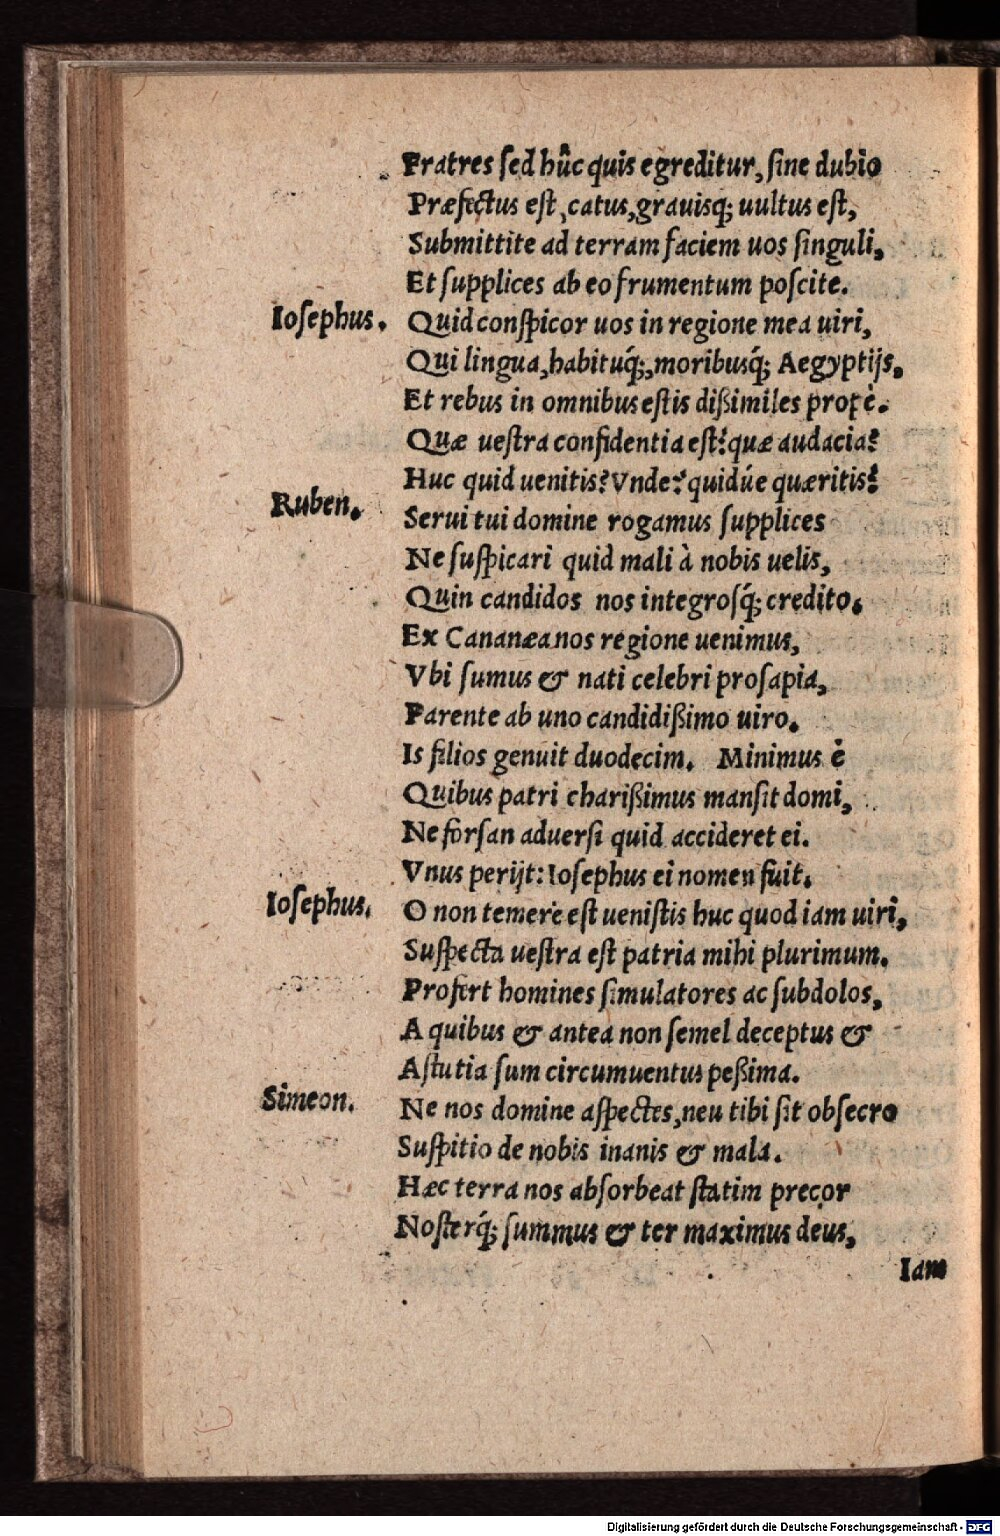 Fratres ſed hûc quis egreditur, ſine dubio
Præfectus eſt, catus, grauisq́; uultus eſt,
Submittite ad terram faciem uos ſinguli,
Et ſupplices ab eo frumentum poſcite.
Ioſephus. Quid conſpicor uos in regione mea uiri,
Qui lingua, habituq́;, moribusq́; Aegyptijs,
Et rebus in omnibus eſtis dißimiles propè.
Quæ ueſtra confidentia eſt? quæ audacia?
Huc quid uenitis? Vnde? quidúe quæritis?
Ruben. Serui tui domine rogamus ſupplices
Ne ſuſpicari quid mali à nobis uelis,
Quin candidos nos integroſq́; credito.
Ex Cananæa nos regione uenimus,
Vbi ſumus & nati celebri proſapia,
Parente ab uno candidißimo uiro.
Is filios genuit duodecim. Minimus è
Quibus patri charißimus manſit domi,
Ne forſan aduerſi quid accideret ei.
Vnus perijt: Ioſephus ei nomen fuit.
Ioſephus. O non temerè eſt ueniſtis huc quod iam uiri,
Suſpecta ueſtra eſt patria mihi plurimum.
Profert homines ſimulatores ac ſubdolos,
A quibus & antea non ſemel deceptus &
Aſtutia ſum circumuentus peßima.
Simeon. Ne nos domine aſpectes, neu tibi ſit obſecro
Suſpitio de nobis inanis & mala.
Hæc terra nos abſorbeat ſtatim precor
Noſterq́; ſummus & ter maximus deus,
Iam
Digitalisierung gefördert durch die Deutsche Forschungsgemeinschaft - DFG